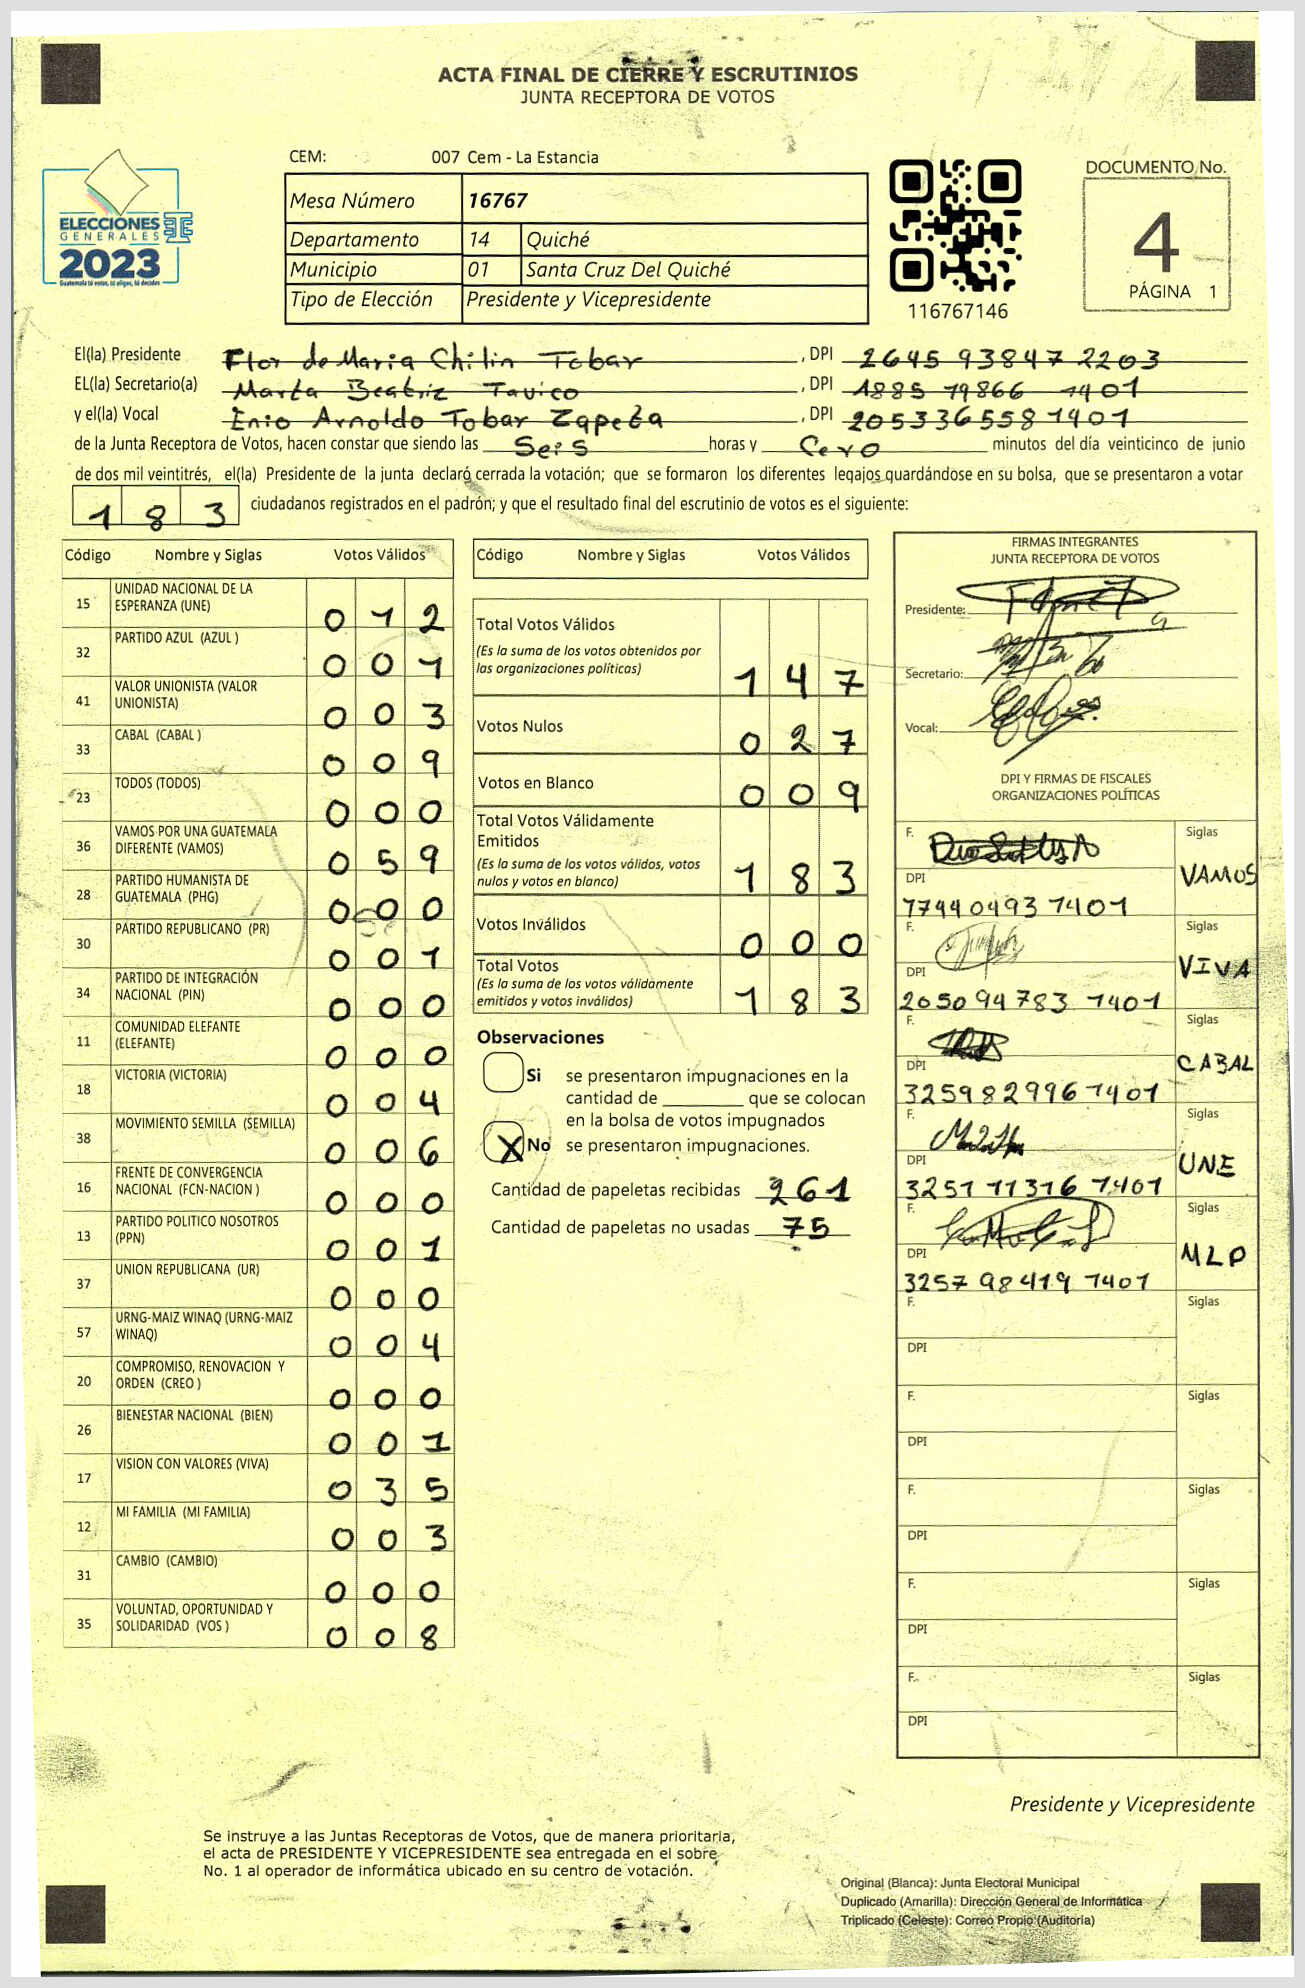 ACTA FINAL DE CIERRE Y ESCRUTINIOS
JUNTA RECEPTORA DE VOTOS
CEM: 007 Cem - La Estancia
DOCUMENTO No.
4
PÁGINA 1
ELECCIONES
GENERALES
2023
Guatemala tú votas, tú eliges, tú decides
Mesa Número 16767
Departamento 14 Quiché
Municipio 01 Santa Cruz Del Quiché
Tipo de Elección Presidente y Vicepresidente
116767146
El(la) Presidente Flor de Maria Chilin Tobar , DPI 2645 93847 2203
EL(la) Secretario(a) Marta Beatriz Tavico , DPI 1885 79866 1401
y el(la) Vocal Enio Arnoldo Tobar Zapeta , DPI 205336558 1401
de la Junta Receptora de Votos, hacen constar que siendo las Seis horas y Cero minutos del día veinticinco de junio
de dos mil veintitrés, el(la) Presidente de la junta declaró cerrada la votación; que se formaron los diferentes legajos guardándose en su bolsa, que se presentaron a votar
183 ciudadanos registrados en el padrón; y que el resultado final del escrutinio de votos es el siguiente:
Código Nombre y Siglas Votos Válidos
15 UNIDAD NACIONAL DE LA ESPERANZA (UNE) 0 1 2
32 PARTIDO AZUL (AZUL ) 0 0 1
41 VALOR UNIONISTA (VALOR UNIONISTA) 0 0 3
33 CABAL (CABAL ) 0 0 9
23 TODOS (TODOS) 0 0 0
36 VAMOS POR UNA GUATEMALA DIFERENTE (VAMOS) 0 5 9
28 PARTIDO HUMANISTA DE GUATEMALA (PHG) 0 0 0
30 PARTIDO REPUBLICANO (PR) 0 0 1
34 PARTIDO DE INTEGRACIÓN NACIONAL (PIN) 0 0 0
11 COMUNIDAD ELEFANTE (ELEFANTE) 0 0 0
18 VICTORIA (VICTORIA) 0 0 4
38 MOVIMIENTO SEMILLA (SEMILLA) 0 0 6
16 FRENTE DE CONVERGENCIA NACIONAL (FCN-NACION ) 0 0 0
13 PARTIDO POLITICO NOSOTROS (PPN) 0 0 1
37 UNION REPUBLICANA (UR) 0 0 0
57 URNG-MAIZ WINAQ (URNG-MAIZ WINAQ) 0 0 4
20 COMPROMISO, RENOVACION Y ORDEN (CREO ) 0 0 0
26 BIENESTAR NACIONAL (BIEN) 0 0 1
17 VISION CON VALORES (VIVA) 0 3 5
12 MI FAMILIA (MI FAMILIA) 0 0 3
31 CAMBIO (CAMBIO) 0 0 0
35 VOLUNTAD, OPORTUNIDAD Y SOLIDARIDAD (VOS ) 0 0 8
Código Nombre y Siglas Votos Válidos
Total Votos Válidos
(Es la suma de los votos obtenidos por
las organizaciones políticas) 1 4 7
Votos Nulos 0 2 7
Votos en Blanco 0 0 9
Total Votos Válidamente
Emitidos
(Es la suma de los votos válidos, votos
nulos y votos en blanco) 1 8 3
Votos Inválidos 0 0 0
Total Votos
(Es la suma de los votos válidamente
emitidos y votos inválidos) 1 8 3
Observaciones
Si se presentaron impugnaciones en la
cantidad de ________ que se colocan
en la bolsa de votos impugnados
X No se presentaron impugnaciones.
Cantidad de papeletas recibidas 261
Cantidad de papeletas no usadas 75
FIRMAS INTEGRANTES
JUNTA RECEPTORA DE VOTOS
Presidente:
Secretario:
Vocal:
DPI Y FIRMAS DE FISCALES
ORGANIZACIONES POLÍTICAS
F. Siglas
VAMOS
DPI
7744 0493 1401
F. Siglas
VIVA
DPI
2050 94783 1401
F. Siglas
CABAL
DPI
325982996 1401
F. Siglas
UNE
DPI
3251 11316 1401
F. Siglas
MLP
DPI
3257 98419 1401
F. Siglas
DPI
F. Siglas
DPI
F. Siglas
DPI
F. Siglas
DPI
F. Siglas
DPI
Presidente y Vicepresidente
Se instruye a las Juntas Receptoras de Votos, que de manera prioritaria,
el acta de PRESIDENTE Y VICEPRESIDENTE sea entregada en el sobre
No. 1 al operador de informática ubicado en su centro de votación.
Original (Blanca): Junta Electoral Municipal
Duplicado (Amarilla): Dirección General de Informática
Triplicado (Celeste): Correo Propio (Auditoría)